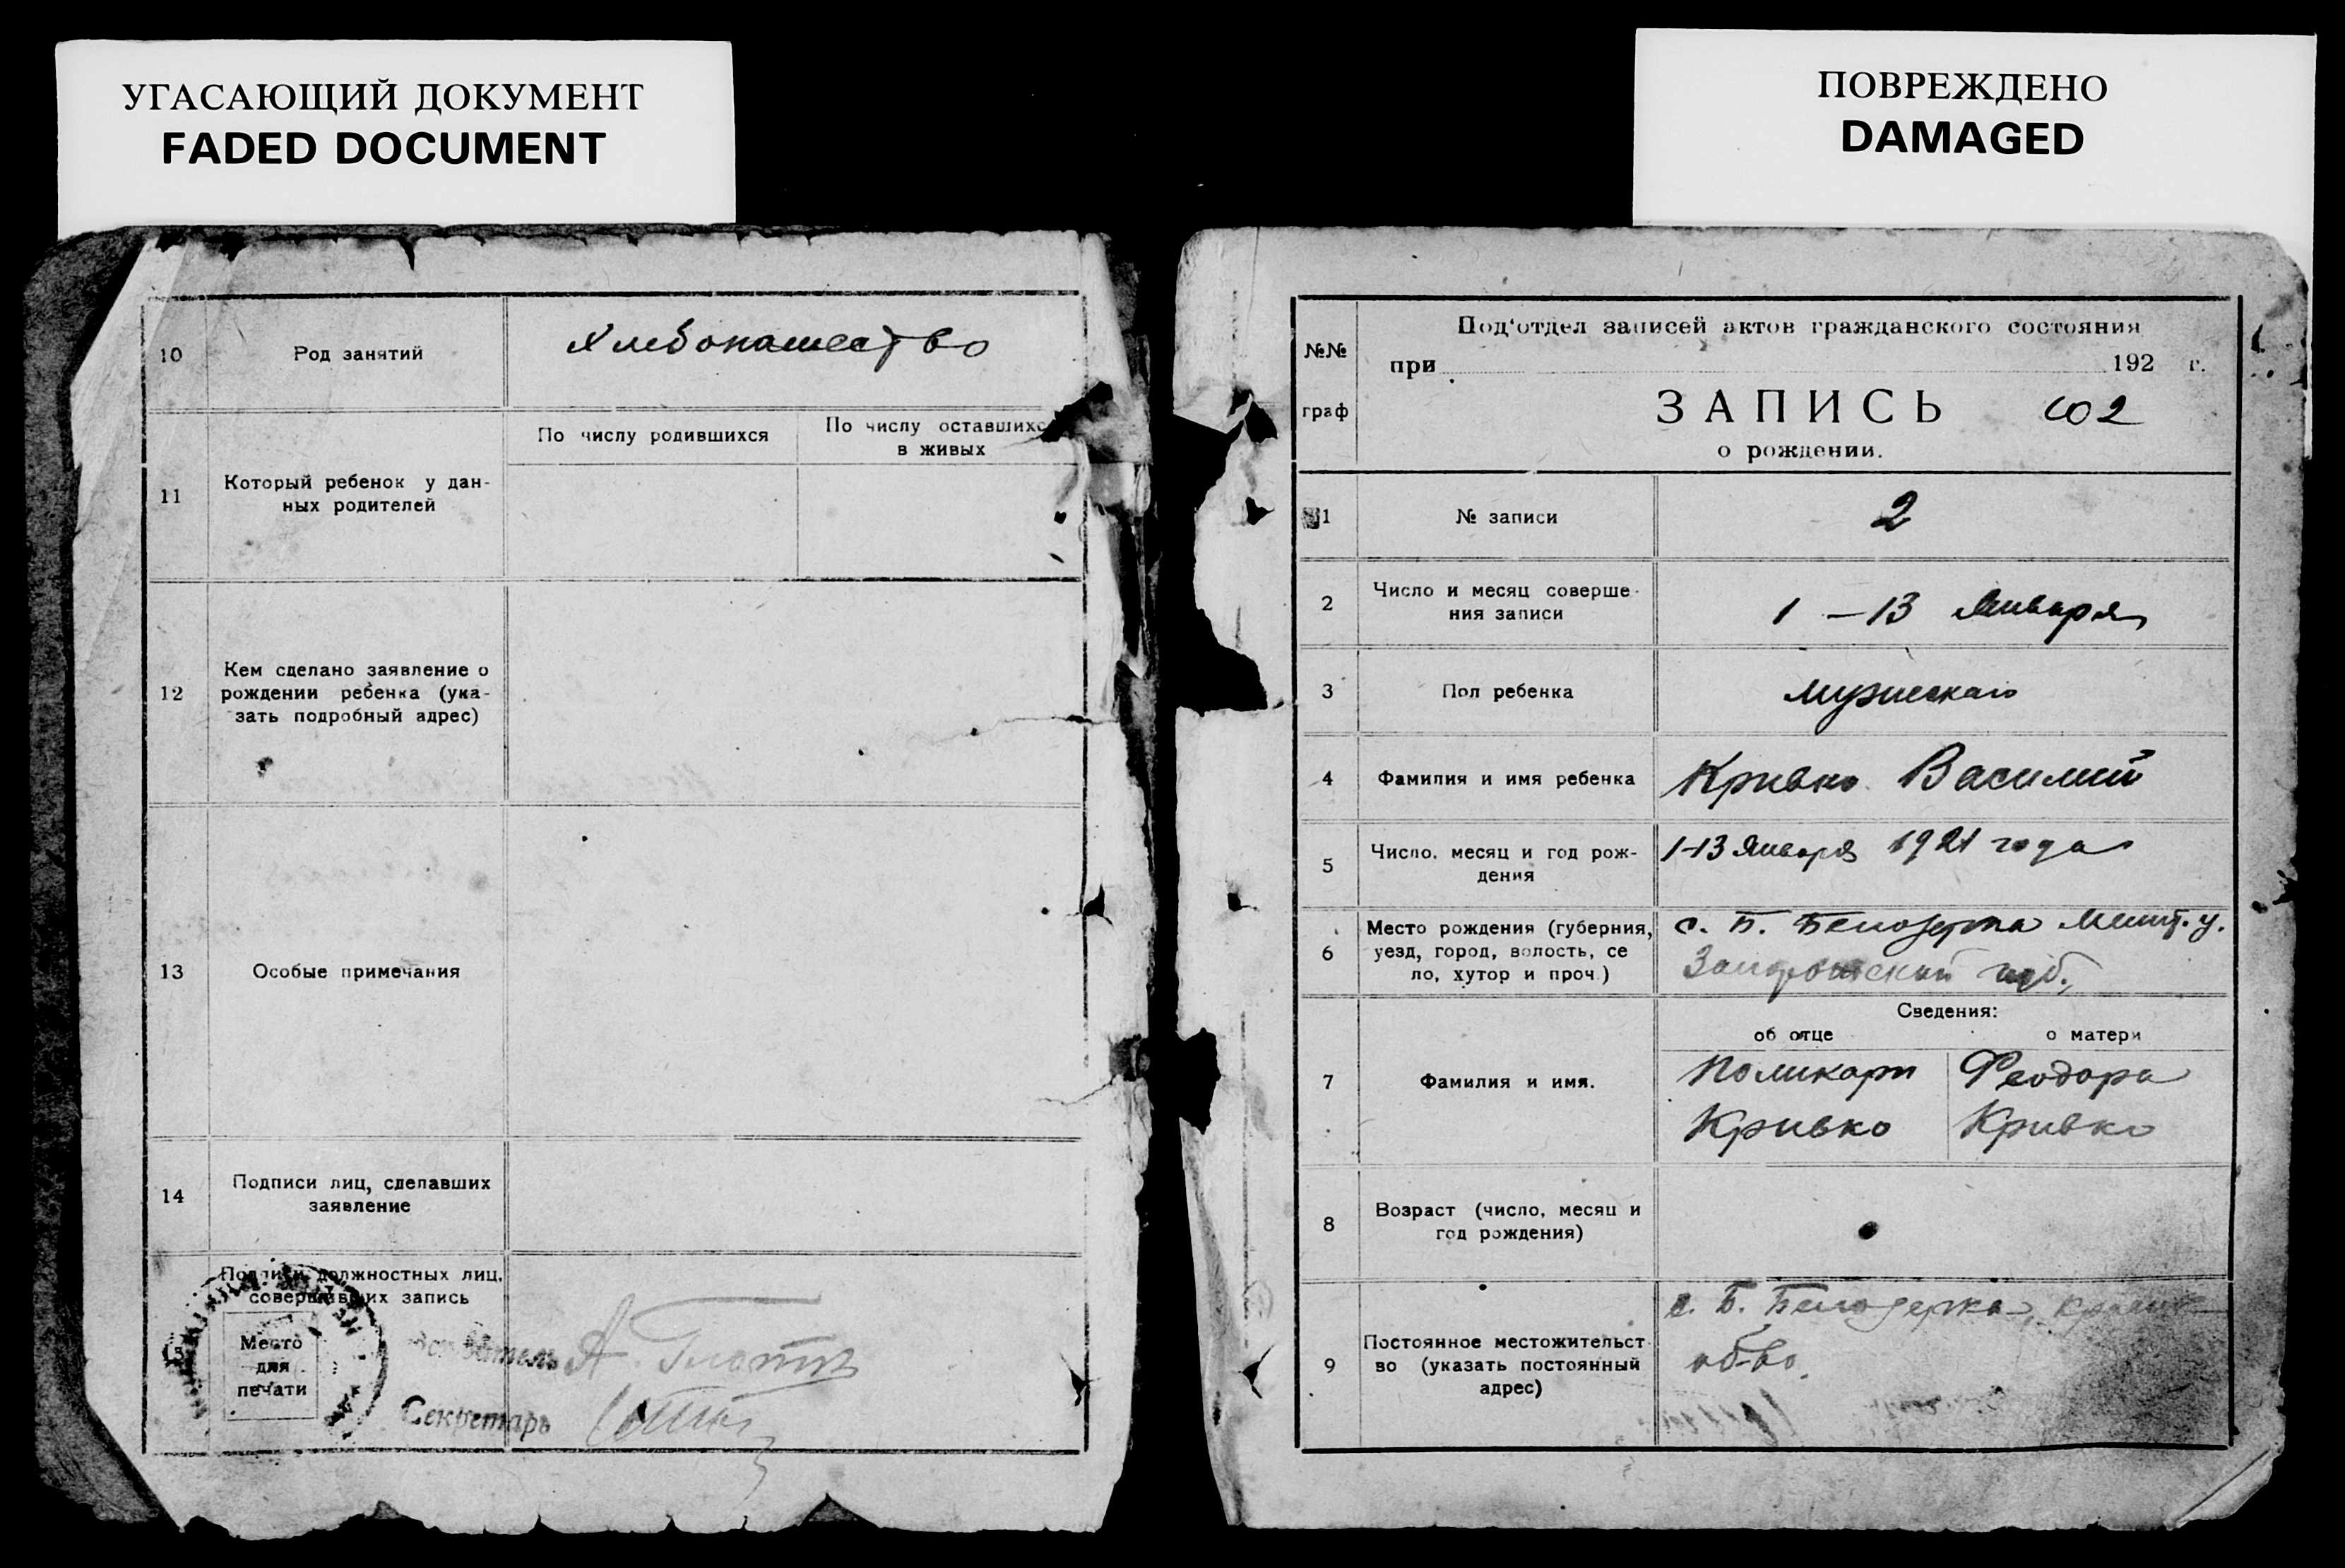 УГАСАЮЩИЙ ДОКУМЕНТ
FADED DOCUMENT
ПОВРЕЖДЕНО
DAMAGED
10 Род занятий Хлебопашество
11 Который ребенок у дан-
ных родителей
По числу родившихся
По число оставшихс
в живых
12 Кем сделано заявление о
рождении ребенка (ука-
зать подробный адрес)
13 Особые примечания
14 Подписи лиц, сделавших
заявление
Подписи должностных лиц,
совершивших запись
Место
для
печати
А.
Секретарь
№№
граф
Под'отдел записей актов гражданского состояния
при 192 г.
ЗАПИСЬ 2
о рождении.
1 № записи 2
2 Число и месяц соверше-
ния записи
1 – 13 Января
3 Пол ребенка мужескаго
4 Фамилия и имя ребенка Кривко Василий
5 Число, месяц и год рож-
дения
1-13 Января 1921 года
6 Место рождения (губерния,
уезд, город, волость, се
ло, хутор и проч.)
с. Б. Белозерка Мелит. у.
Запорожской губ.
Сведения:
об отце о матери
7 Фамилия и имя.
Поликарп Феодора
Кривко Кривко
8 Возраст (число, месяц и
год рождения)
9 Постоянное местожительст
во (указать постоянный
адрес)
с. Б. Белозерка,
об-во.